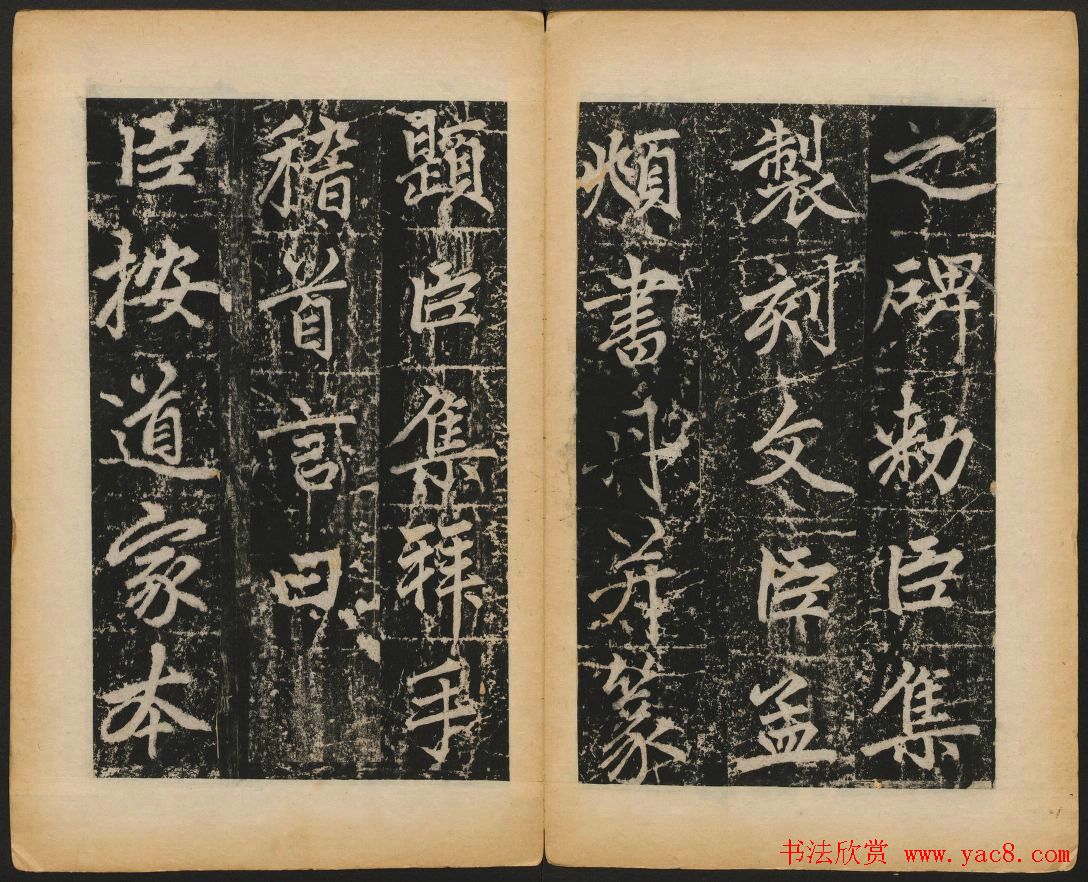 之碑敕臣集
製刻文臣孟
頫書丹并篆
題臣集拜手
稽首言曰
臣按道家本
书法欣赏 www.yac8.com